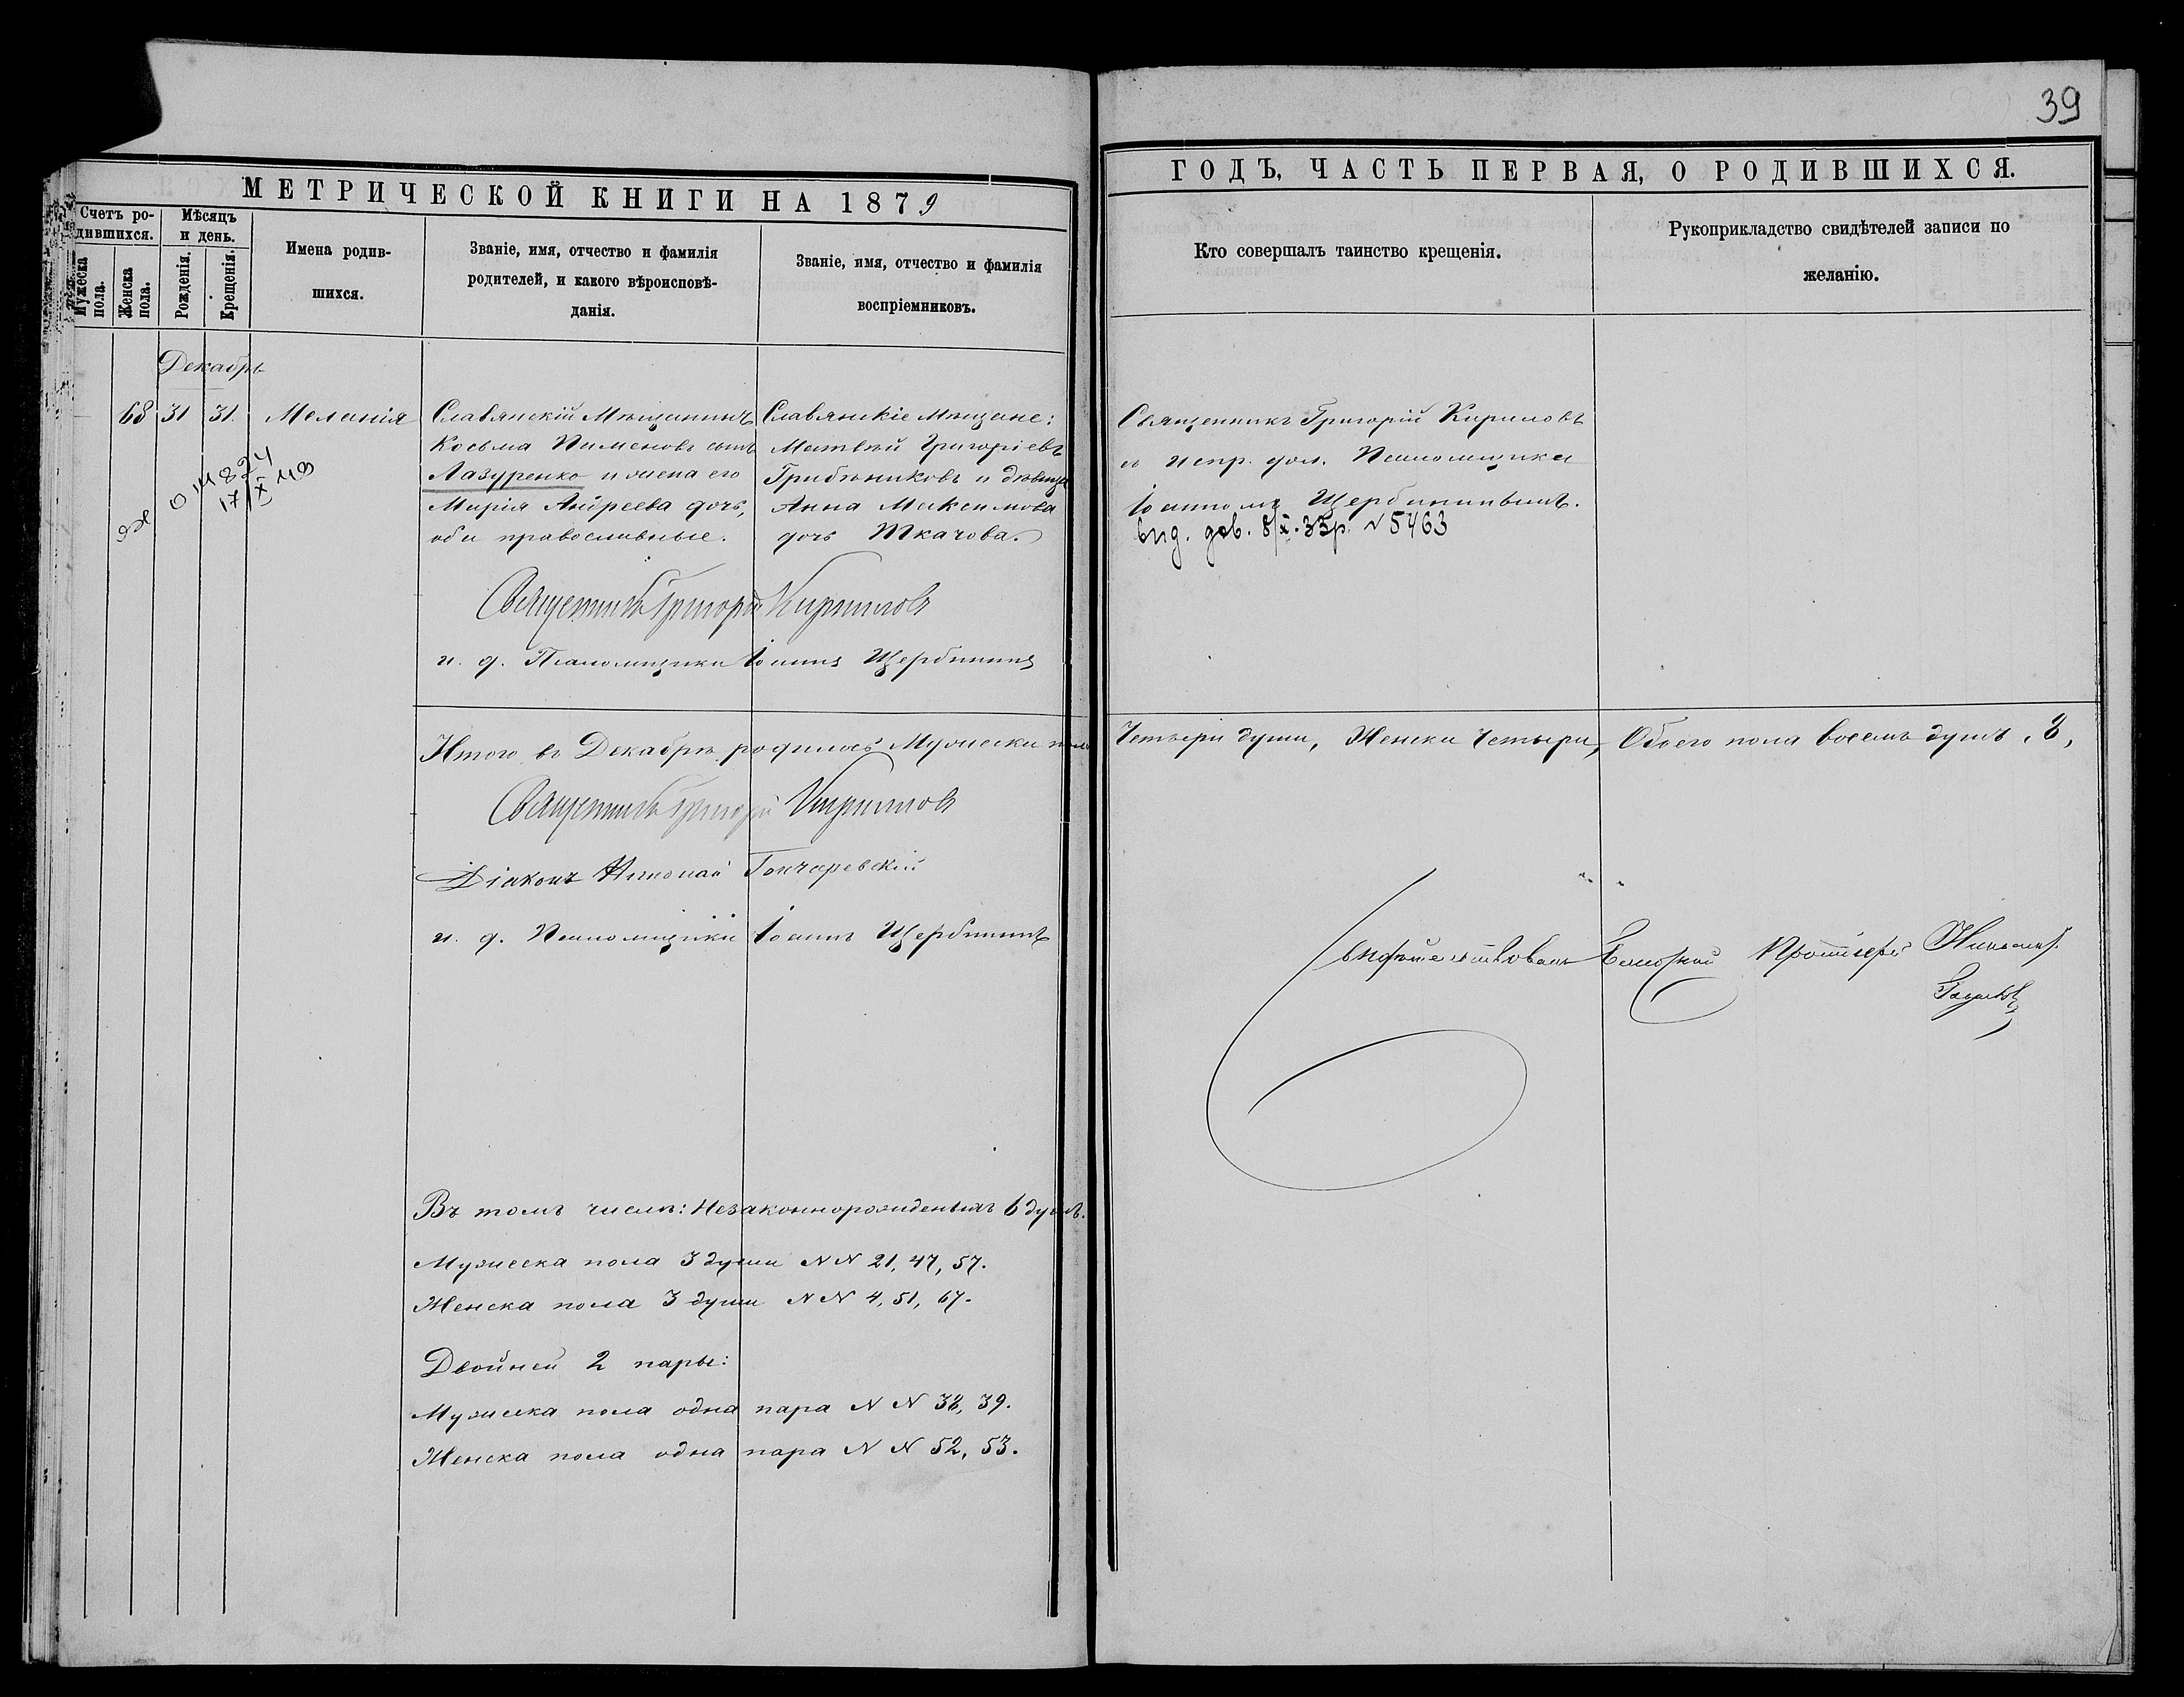 39
МЕТРИЧЕСКОЙ КНИГИ НА 1879
ГОДЪ, ЧАСТЬ ПЕРВАЯ, О РОДИВШИХСЯ.
Счетъ ро-
дившихся.
Мужеска
пола.
Женска
пола.
Мѣсяцъ
и день.
Рожденія.
Крещенія.
Имена родив-
шихся.
Званіе, имя, отчество и фамилія
родителей, и какого вѣроисповѣ-
данія.
Званіе, имя, отчество и фамилія
воспріемниковъ.
Кто совершалъ таинство крещенія.
Рукоприкладство свидѣтелей записи по
желанію.
Декабрь
68 31 31. Меланія
Славянскій Мѣщанинъ
Косьма Пименовъ сынъ
Лазуренко и жена его
Марія Андреева дочь,
оба православные.
Славянскіе мѣщане:
Матвѣй Григоріевъ
Грибѣниковъ и дѣвица
Анна Максимова
дочь Ткачова.
Священникъ Григорій Кириловъ
съ испр. дол. Псаломщика
Іоанномъ Щербининымъ.
вид. дов. 8/X.35р. N 5463
17/X
Священникъ Григорій Кириловъ
и. д. Псаломщика Іоаннъ Щербининъ
Итого въ Декабрѣ родилось Мужеска пола Четыри души, Женска Четыри, Обоего пола восемь душъ, 8,
Священникъ Григорій Кириловъ
Діаконъ Николай Гончаревскій
и. д. Псаломщика Іоаннъ Щербининъ
Протоіерей
Въ томъ числѣ: Незаконнорожденныхъ 6 душъ.
Мужеска пола 3 души N N 21, 47, 57.
Женска пола 3 души N N 4, 51, 67.
Двойней 2 пары:
Мужеска пола одна пара N N 38, 39.
Женска пола одна пара N N 52, 53.